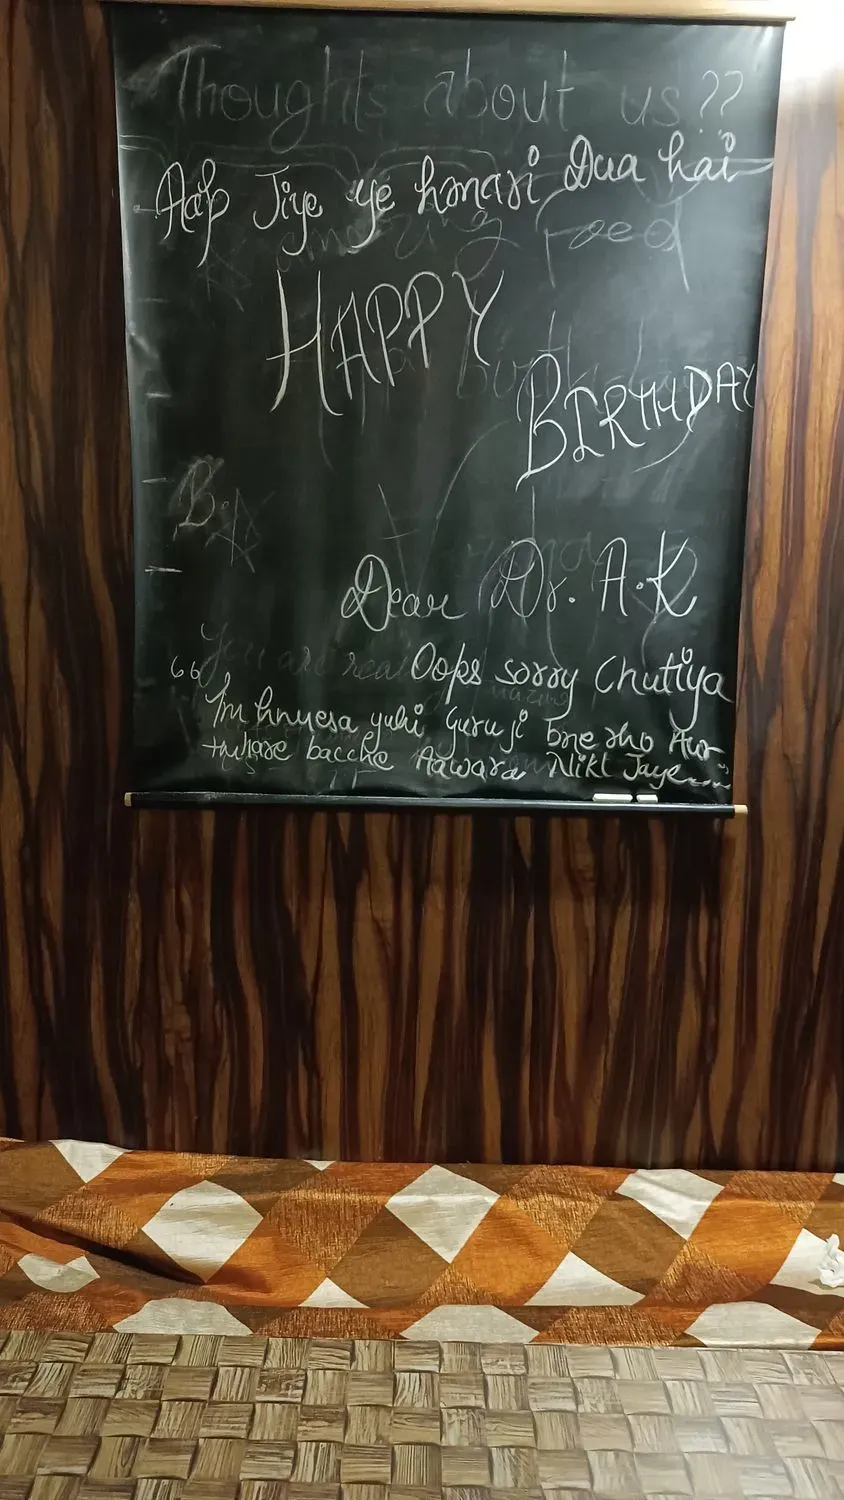 Thoughts about us??
Aap Jiye ye hmari Dua hai
Amazing Food
HAPPY
BIRTHDAY
B.
Dear Dr. A.K
You are rea Oops sorry Chutiya
“Tm hmesa yuhi Guruji bne rho Aur
tmhare bacche Aawara Nikl Jaye....”